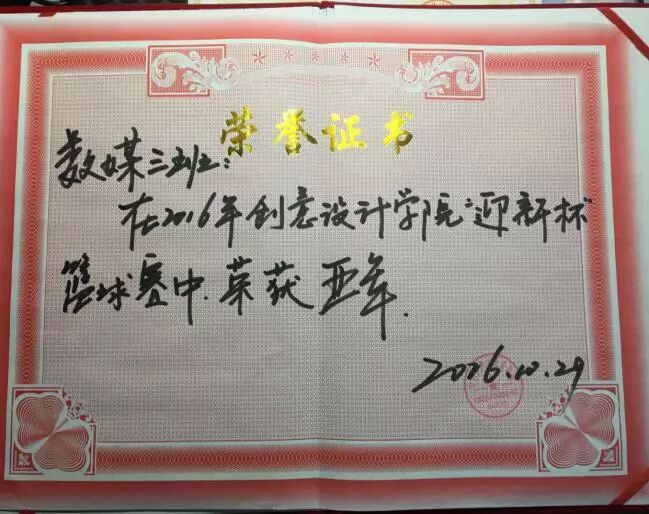 荣誉证书
数媒三班：
在2016年创意设计学院“迎新杯
篮球赛中.荣获 亚军.
2016.10.29